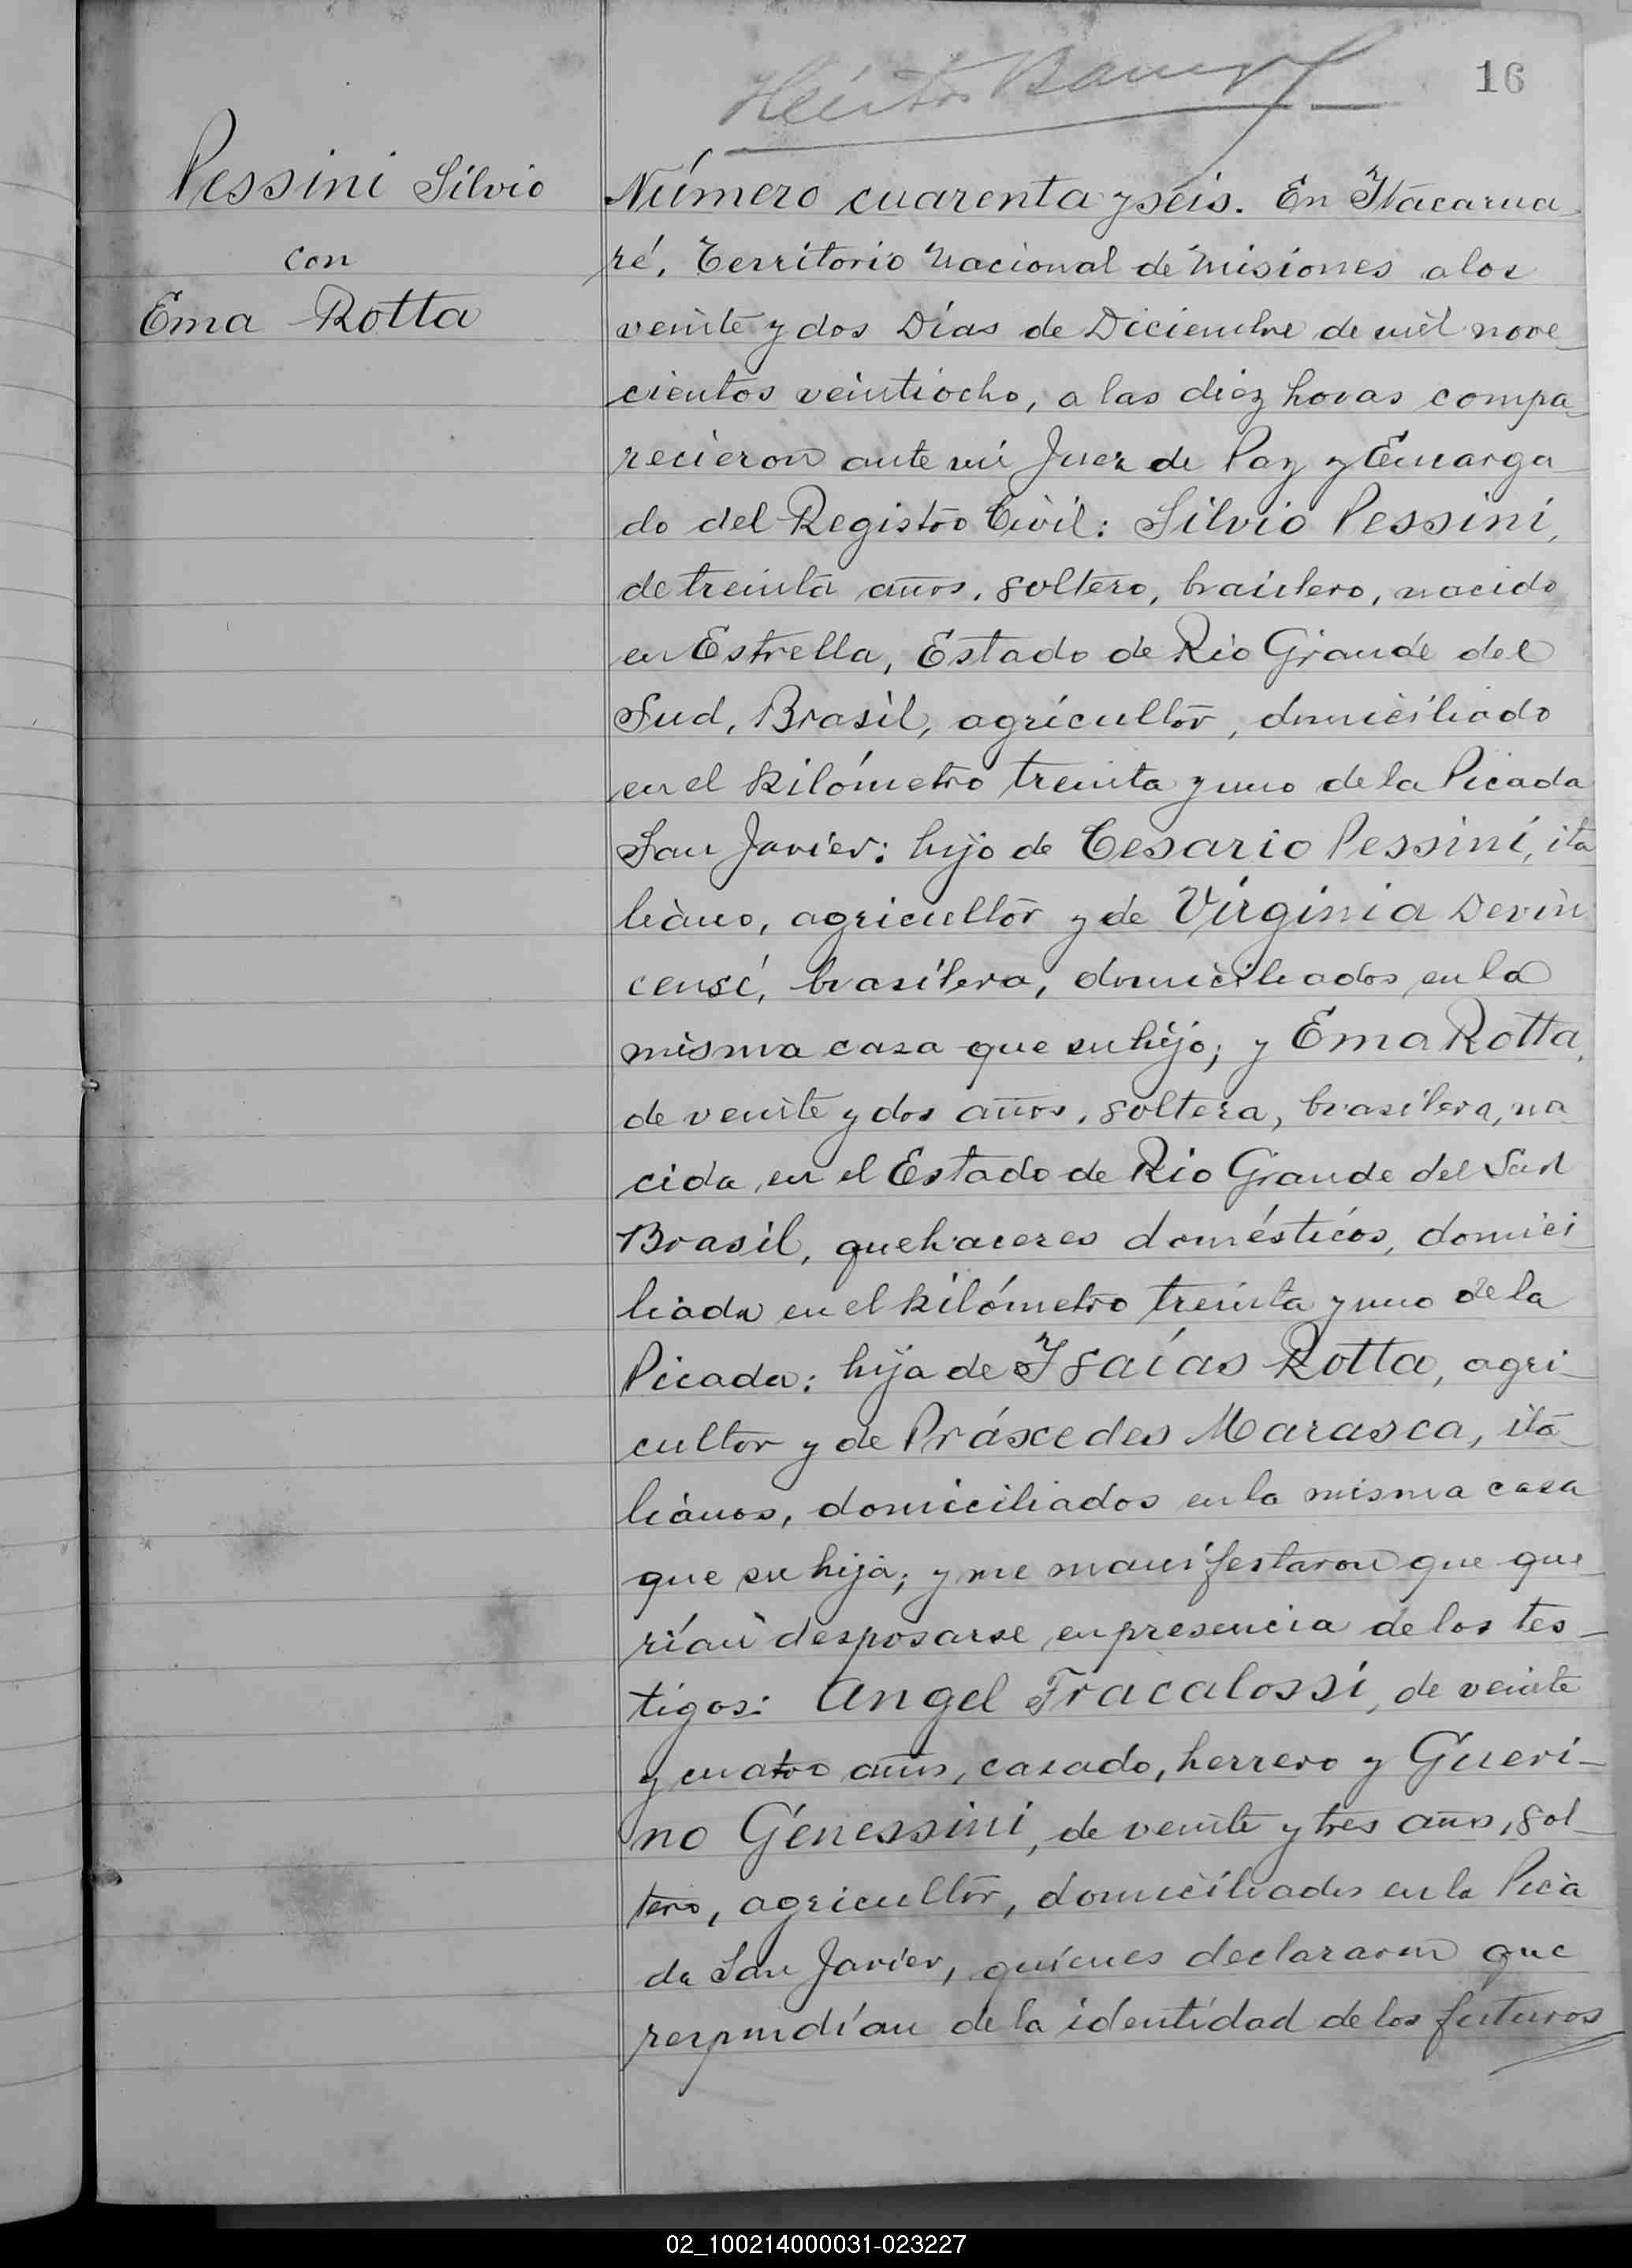 16
Pessini Silvio
con
Ema Rotta
Número cuarenta y seis. En Itacarua
ré, Territorio Nacional de Misiones a los
veinte y dos Días de Diciembre de mil nove
cientos veintiocho, a las diez horas compa
recieron ante mi Juez de Paz y Encarga
do del Registro Civil: Silvio Pessini,
de treinta años, soltero, brasilero, nacido
en Estrella, Estado de Rio Grande del
Sud, Brasil, agricultor, domiciliado
en el kilómetro treinta y uno de la Picada
San Javier: hijo de Cesario Pessini, ita
liano, agricultor y de Virginia Devin
censi, brasilera, domiciliados en la
misma casa que su hijo; y Ema Rotta,
de veinte y dos años, soltera, brasilera, na
cida en el Estado de Rio Grande del Sud
Brasil, quehaceres domésticos, domici
liada en el kilómetro treinta y uno de la
Picada: hija de Isaías Rotta, agri-
cultor y de Práxcedes Marasca, ita-
lianos, domiciliados en la misma casa
que su hija; y me manifestaron que que
rían desposarse en presencia de los tes-
tigos: Angel Fracalossi, de veinte
y cuatro años, casado, herrero y Gueri-
no Genessini, de veinte y tres años, sol
tero, agricultor, domiciliados en la Pica
da San Javier, quienes declararon que
respondían de la identidad de los futuros
02_100214000031-023227